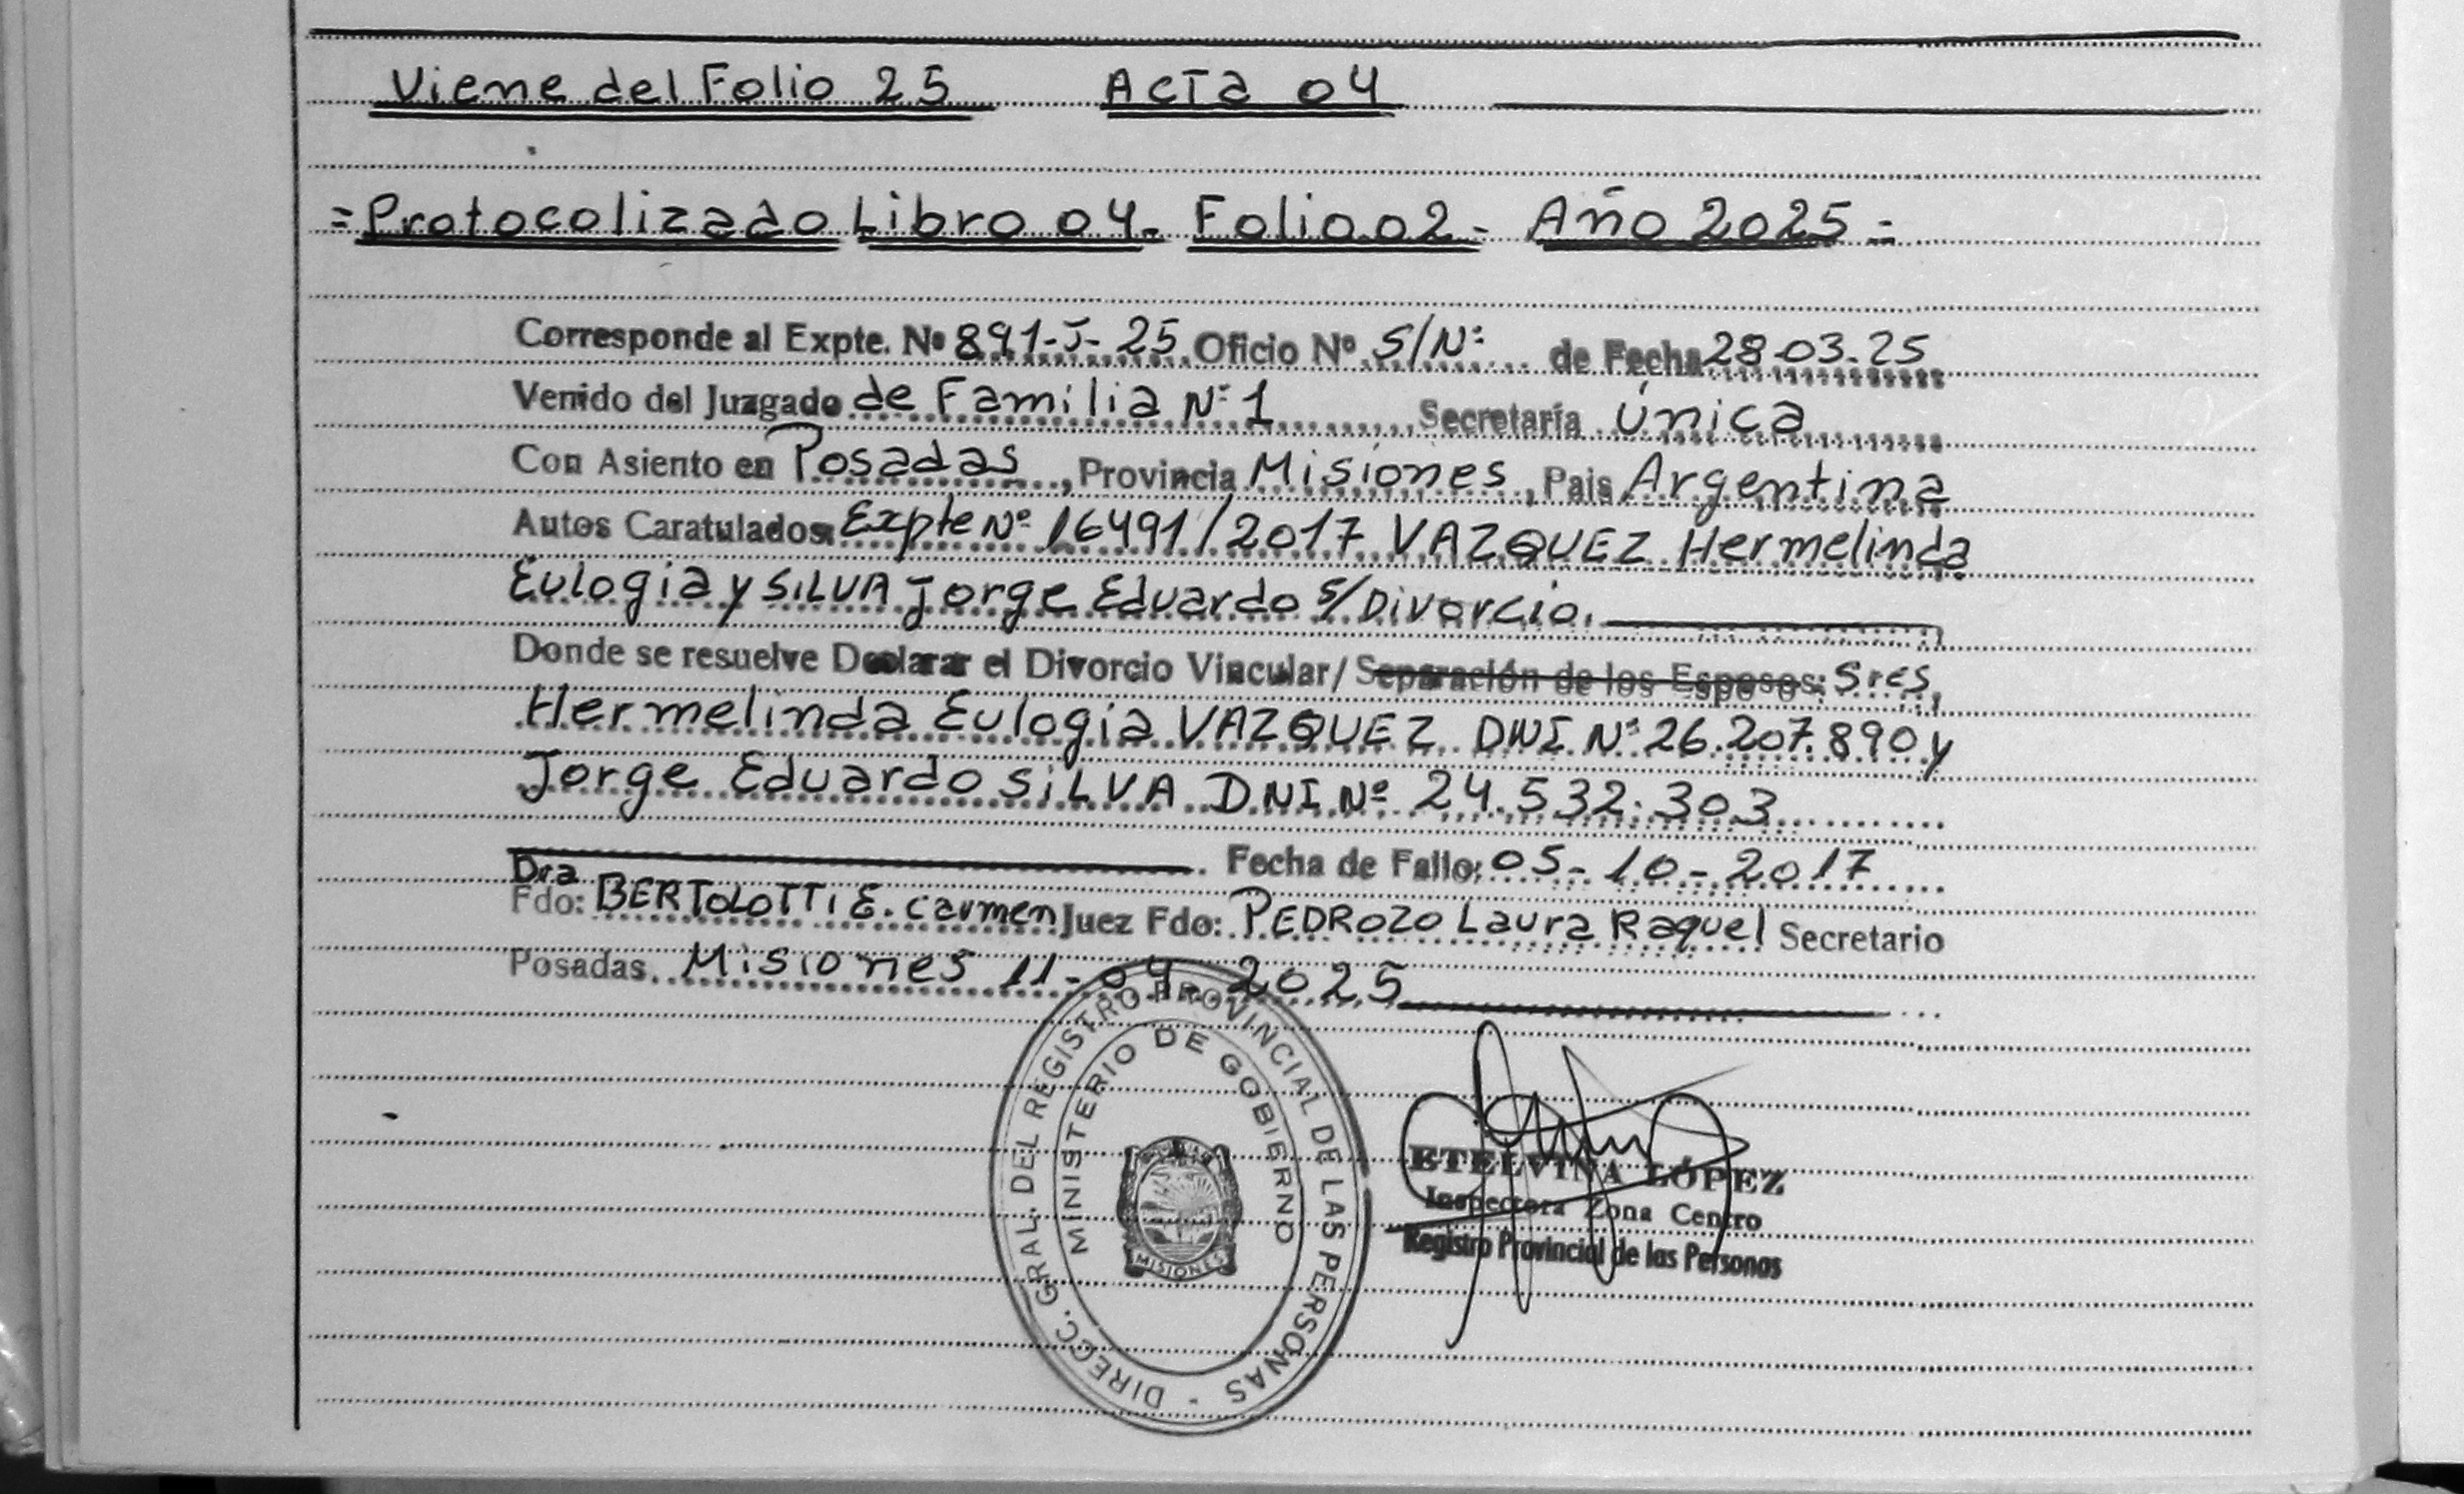 Viene del Folio 25 Acta 04
=Protocolizado Libro 04- Folio 02- Año 2025=
Corresponde al Expte. Nº 891-J-25 Oficio Nº S/Nº de Fecha 28-03-25
Venido del Juzgado de Familia Nº 1 Secretaría Única
Con Asiento en Posadas, Provincia Misiones, Pais Argentina
Autos Caratulados: Expte Nº 16491/2017 VAZQUEZ Hermelinda
Eulogia y SILVA Jorge Eduardo S/Divorcio.
Donde se resuelve Declarar el Divorcio Vincular/Separación de los Esposos: Sres,
Hermelinda Eulogia VAZQUEZ DNI Nº 26.207.890 y
Jorge Eduardo SILVA DNI Nº 24.532.303
. Fecha de Fallo: 05-10-2017
Dra
Fdo: BERTOLOTTI E. Carmen Juez Fdo: PEDROZO Laura Raquel Secretario
Posadas, Misiones 11-04-2025
DIRECC. GRAL. DEL REGISTRO PROVINCIAL DE LAS PERSONAS -
MINISTERIO DE GOBIERNO
MISIONES
ETELVINA LÓPEZ
Inspectora Zona Centro
Registro Provincial de las Personas